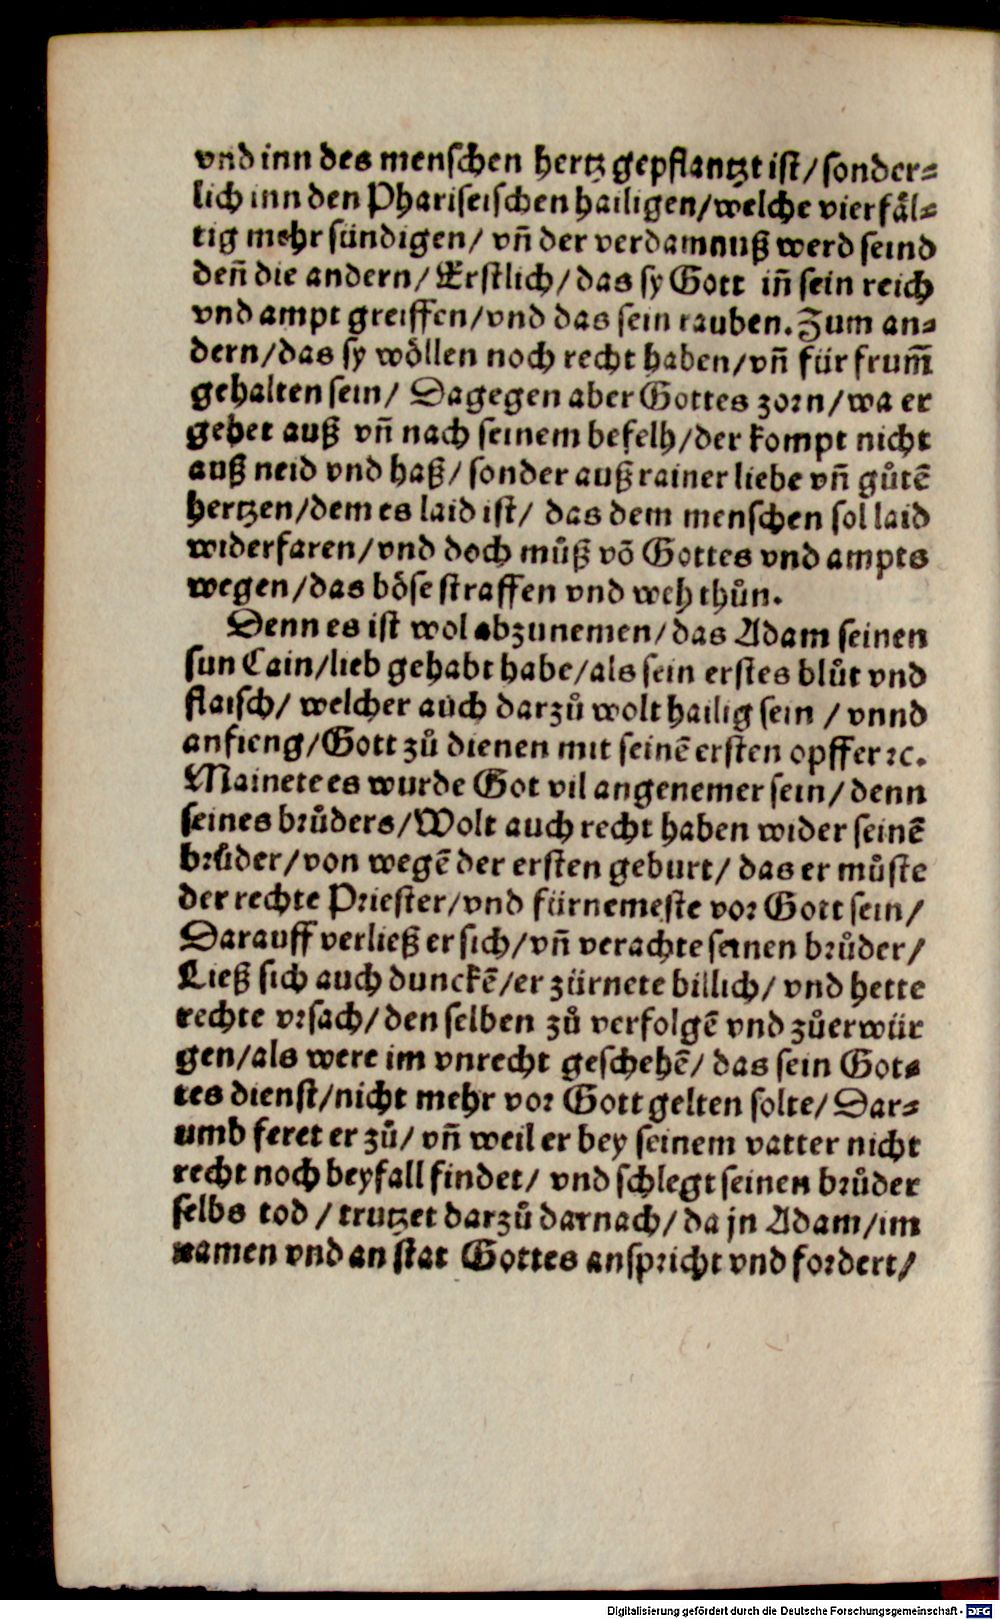 vnd inn des menschen hertz gepflantzt ist/ sonder⸗
lich inn den Phariseischen hailigen/welche vierfål⸗
tig mehr sündigen/ vn̄ der verdamnuß werd seind
den̄ die andern/ Erstlich/ das sy Gott in̄ sein reich
vnd ampt greiffen/vnd das sein rauben. Zum an⸗
dern/das sy wöllen noch recht haben/vn̄ für frum̄
gehalten sein/ Dagegen aber Gottes zorn/wa er
gehet auß vn̄ nach seinem befelh/der kompt nicht
auß neid vnd haß/ sonder auß rainer liebe vn̄ gůtē
hertzen/dem es laid ist/ das dem menschen sol laid
widerfaren/vnd doch můß vō Gottes vnd ampts
wegen/das böse straffen vnd weh thůn.
Denn es ist wol abzunemen/das Adam seinen
sun Cain/lieb gehabt habe/als sein erstes blůt vnd
flaisch/ welcher auch darzů wolt hailig sein / vnnd
anfieng/Gott zů dienen mit seinē ersten opffer ꝛc.
Mainete es wurde Got vil angenemer sein/ denn
seines brůders/Wolt auch recht haben wider seinē
brůder/von wegē der ersten geburt/ das er můste
der rechte Priester/vnd fürnemeste vor Gott sein/
Darauff verließ er sich/vn̄ verachte seinen brůder/
Ließ sich auch dunckē/er zürnete billich/ vnd hette
rechte vrsach/den selben zů verfolgē vnd zůerwür
gen/als were im vnrecht geschehē/ das sein Got⸗
tes dienst/nicht mehr vor Gott gelten solte/ Dar⸗
umb feret er zů/ vn̄ weil er bey seinem vatter nicht
recht noch beyfall findet/ vnd schlegt seinen brůder
selbs tod / trutzet darzů darnach/da jn Adam/im
namen vnd an stat Gottes anspricht vnd fordert/
Digitalisierung gefördert durch die Deutsche Forschungsgemeinschaft - DFG